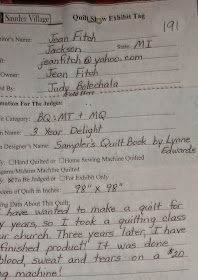 Sauder Village
Quilt Show Exhibit Tag
191
itor's Name: Jean Fitch
Jackson State: MI
il: jeanfitch@yahoo.com
Owner: Jean Fitch
d By: Judy
mation For The Judges:
it Category: BQ: MT + MQ
n Name: 3 Year Delight
n Designer's Name: Sampler's Quilt Book by Lynne
Edwards
Hand Quilted or Home Sewing Machine Quilted
Machine Quilted
To Be Judged or For Exhibit Only
sions of Quilt in Inches: 98" x 98"
ting Data About This Quilt:
I have wanted to make a quilt for
y years, so I took a quilting class
ur church. Three years later, I have
finished product! It was done
blood, sweat and tears on a $20
ng machine!